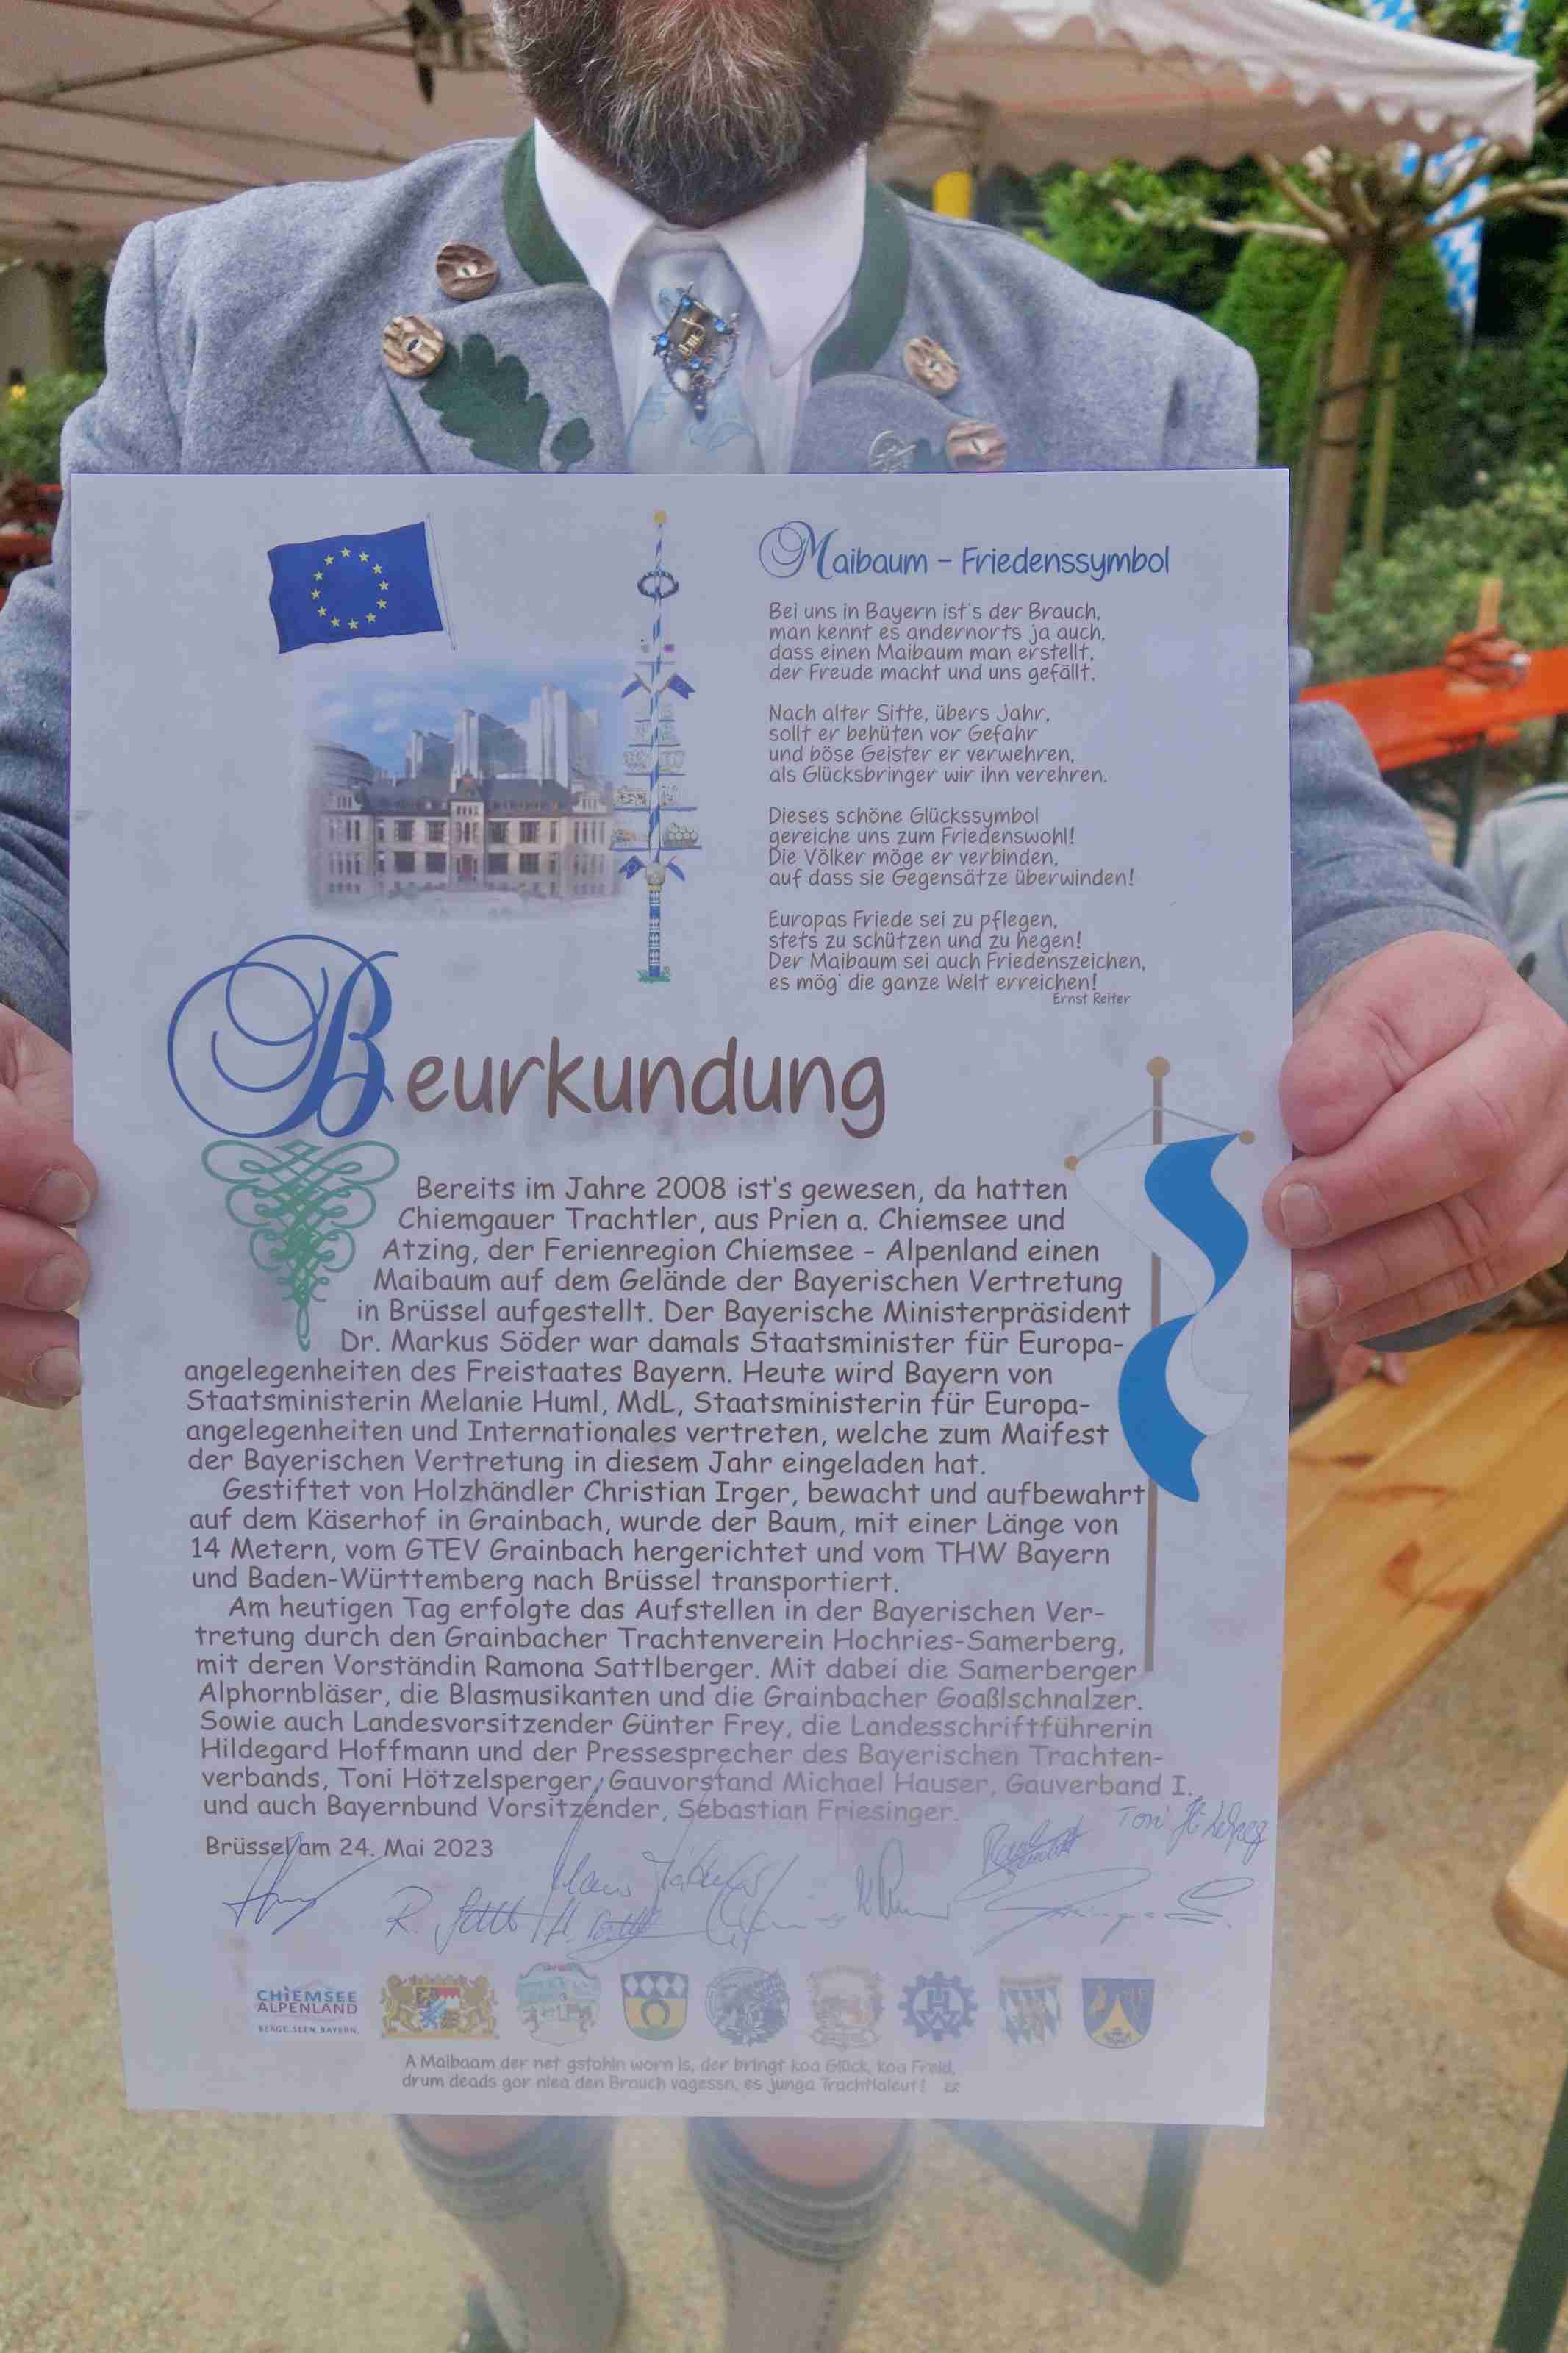 Maibaum - Friedenssymbol
Bei uns in Bayern ist's der Brauch,
man kennt es andernorts ja auch,
dass einen Maibaum man erstellt,
der Freude macht und uns gefällt.
Nach alter Sitte, übers Jahr,
sollt er behüten vor Gefahr
und böse Geister er verwehren,
als Glücksbringer wir ihn verehren.
Dieses schöne Glückssymbol
gereiche uns zum Friedenswohl!
Die Völker möge er verbinden,
auf dass sie Gegensätze überwinden!
Europas Friede sei zu pflegen,
stets zu schützen und zu hegen!
Der Maibaum sei auch Friedenszeichen,
es mög' die ganze Welt erreichen!
Ernst Reiter
Beurkundung
Bereits im Jahre 2008 ist's gewesen, da hatten
Chiemgauer Trachtler, aus Prien a. Chiemsee und
Atzing, der Ferienregion Chiemsee - Alpenland einen
Maibaum auf dem Gelände der Bayerischen Vertretung
in Brüssel aufgestellt. Der Bayerische Ministerpräsident
Dr. Markus Söder war damals Staatsminister für Europa-
angelegenheiten des Freistaates Bayern. Heute wird Bayern von
Staatsministerin Melanie Huml, MdL, Staatsministerin für Europa-
angelegenheiten und Internationales vertreten, welche zum Maifest
der Bayerischen Vertretung in diesem Jahr eingeladen hat.
Gestiftet von Holzhändler Christian Irger, bewacht und aufbewahrt
auf dem Käserhof in Grainbach, wurde der Baum, mit einer Länge von
14 Metern, vom GTEV Grainbach hergerichtet und vom THW Bayern
und Baden-Württemberg nach Brüssel transportiert.
Am heutigen Tag erfolgte das Aufstellen in der Bayerischen Ver-
tretung durch den Grainbacher Trachtenverein Hochries-Samerberg,
mit deren Vorständin Ramona Sattlberger. Mit dabei die Samerberger
Alphornbläser, die Blasmusikanten und die Grainbacher Goaßlschnalzer.
Sowie auch Landesvorsitzender Günter Frey, die Landesschriftführerin
Hildegard Hoffmann und der Pressesprecher des Bayerischen Trachten-
verbands, Toni Hötzelsperger, Gauvorstand Michael Hauser, Gauverband I.
und auch Bayernbund Vorsitzender, Sebastian Friesinger.
Brüssel am 24. Mai 2023
Toni
R.
CHiEMSEE
ALPENLAND
BERGE.SEEN.BAYERN.
A Maibaam der net gstohln worn is, der bringt koa Glück, koa Freid,
drum deads gor niea den Brauch vagessn, es junga Trachtlaleut! ER